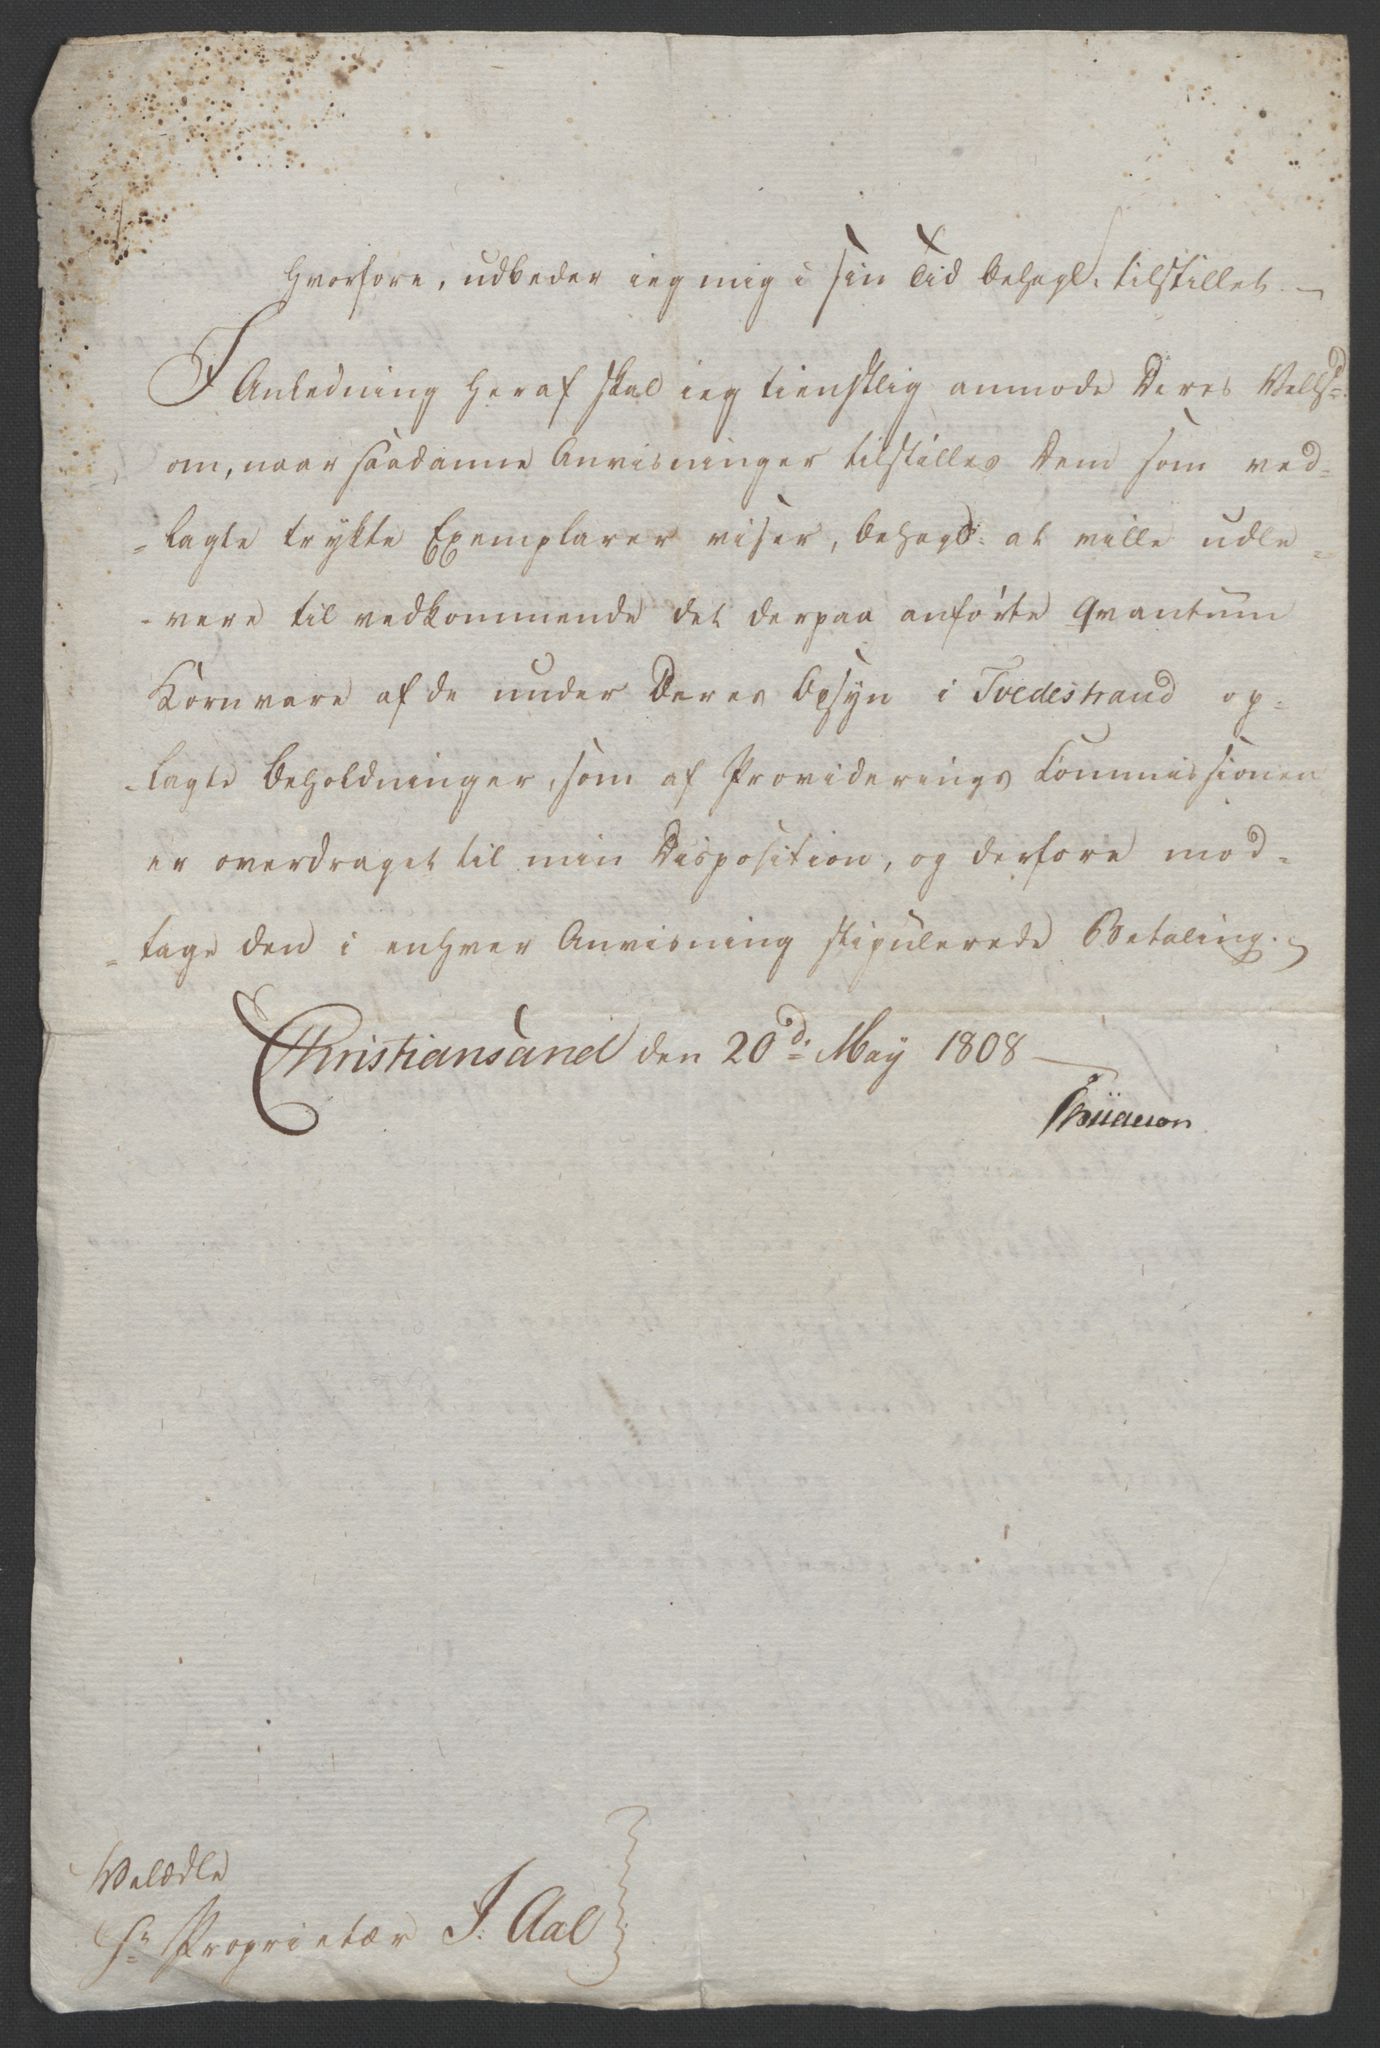 Hvorfore, udbeder ieg mig i sin Tid behagl: tilstillet. –
I Anledning heraf skal ieg tienstlig anmode Deres Velbd:
om, naar saadanne Anvisninger tilstilles Dem som ved-
-lagte trykte Exemplarer viser, behagl: at ville udle-
-vere til vedkommende det derpaa anførte Qvantum
Kornvare af de under Deres Opsyn i Tvedestrand op-
-lagte Beholdninger, som af Providerings Commissionen
er overdraget til min Disposition, og derfore mod-
-tage den i enhver Anvisning stipulerede Betaling.
Christiansand den 20d: May 1808 –
Velædle
Hr: Proprietær J: Aal